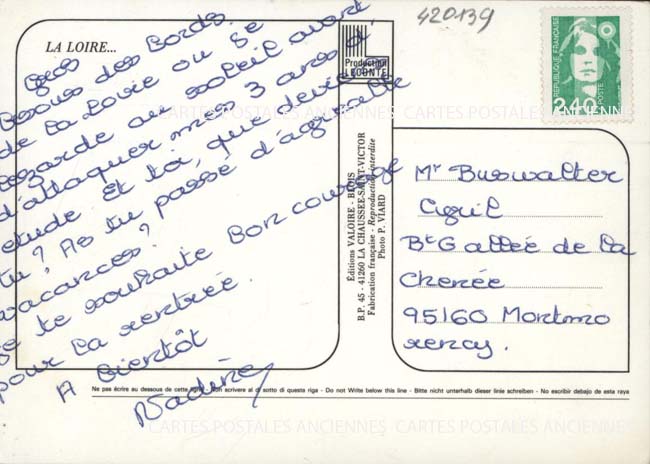 420139
LA LOIRE...
Production
LECONTE
REPUBLIQUE FRANCAISE
2,40
POSTE
Gros
Bisous des Bords
de la Loire ou je
regarde au soleil avant
d'attaquer mes 3 ans d'
etude Et toi, que deviens
tu? As tu passé d'agreable
vacances?
Je te souhaite Bon courage
pour la rentrée.
A bientôt
Nadine
Éditions VALOIRE - BLOIS
B.P. 45 - 41260 LA CHAUSSEE-SAINT-VICTOR
Fabrication française - Reproduction interdite
Photo P. VIARD
Mr Buswalter
Cyril
Bt G allée de la
Chenée
95160 Montmo
rency.
Ne pas écrire au dessous de cette ligne - Non scrivere al di sotto di questa riga - Do not Write below this line - Bitte nicht unterhalb dieser linie schreiben - No escribir debajo de esta raya
CARTES POSTALES ANCIENNES CARTES POSTALES ANCIENNES
CARTES POSTALES ANCIENNES CARTES POSTALES ANCIENNES